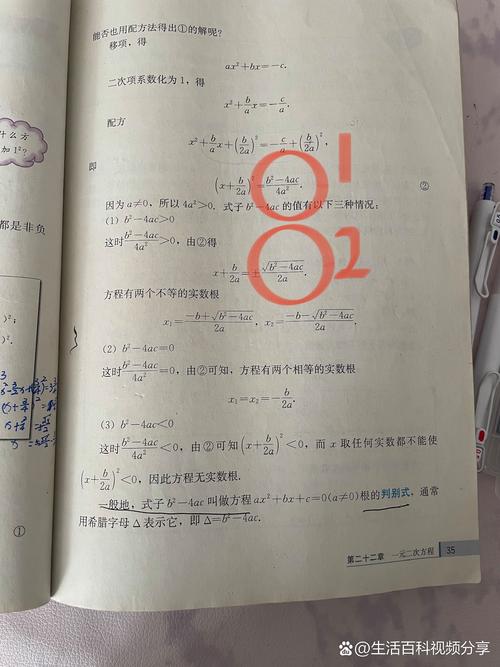 能否也用配方法得出①的解呢?
移项,得
ax²+bx=-c.
二次项系数化为1,得
x²+\frac{b}{a}x=-\frac{c}{a}.
配方
x²+\frac{b}{a}x+(\frac{b}{2a})²=-\frac{c}{a}+(\frac{b}{2a})²,
即
(x+\frac{b}{2a})²=\frac{b²-4ac}{4a²}. ②
1
因为a≠0,所以4a²>0.式子b²-4ac的值有以下三种情况:
(1) b²-4ac>0
这时\frac{b²-4ac}{4a²}>0,由②得
x+\frac{b}{2a}=±\frac{\sqrt{b²-4ac}}{2a}.
2
方程有两个不等的实数根
x₁=\frac{-b+\sqrt{b²-4ac}}{2a}, x₂=\frac{-b-\sqrt{b²-4ac}}{2a}.
(2) b²-4ac=0
这时\frac{b²-4ac}{4a²}=0,由②可知,方程有两个相等的实数根
x₁=x₂=-\frac{b}{2a}.
(3) b²-4ac<0
这时\frac{b²-4ac}{4a²}<0,由②可知(x+\frac{b}{2a})²<0,而x取任何实数都不能使
(x+\frac{b}{2a})²<0,因此方程无实数根.
一般地,式子b²-4ac叫做方程ax²+bx+c=0(a≠0)根的判别式,通常
用希腊字母Δ表示它,即Δ=b²-4ac.
第二十二章 一元二次方程 35
什么方
加1²?
都是非负
①
@生活百科视频分享